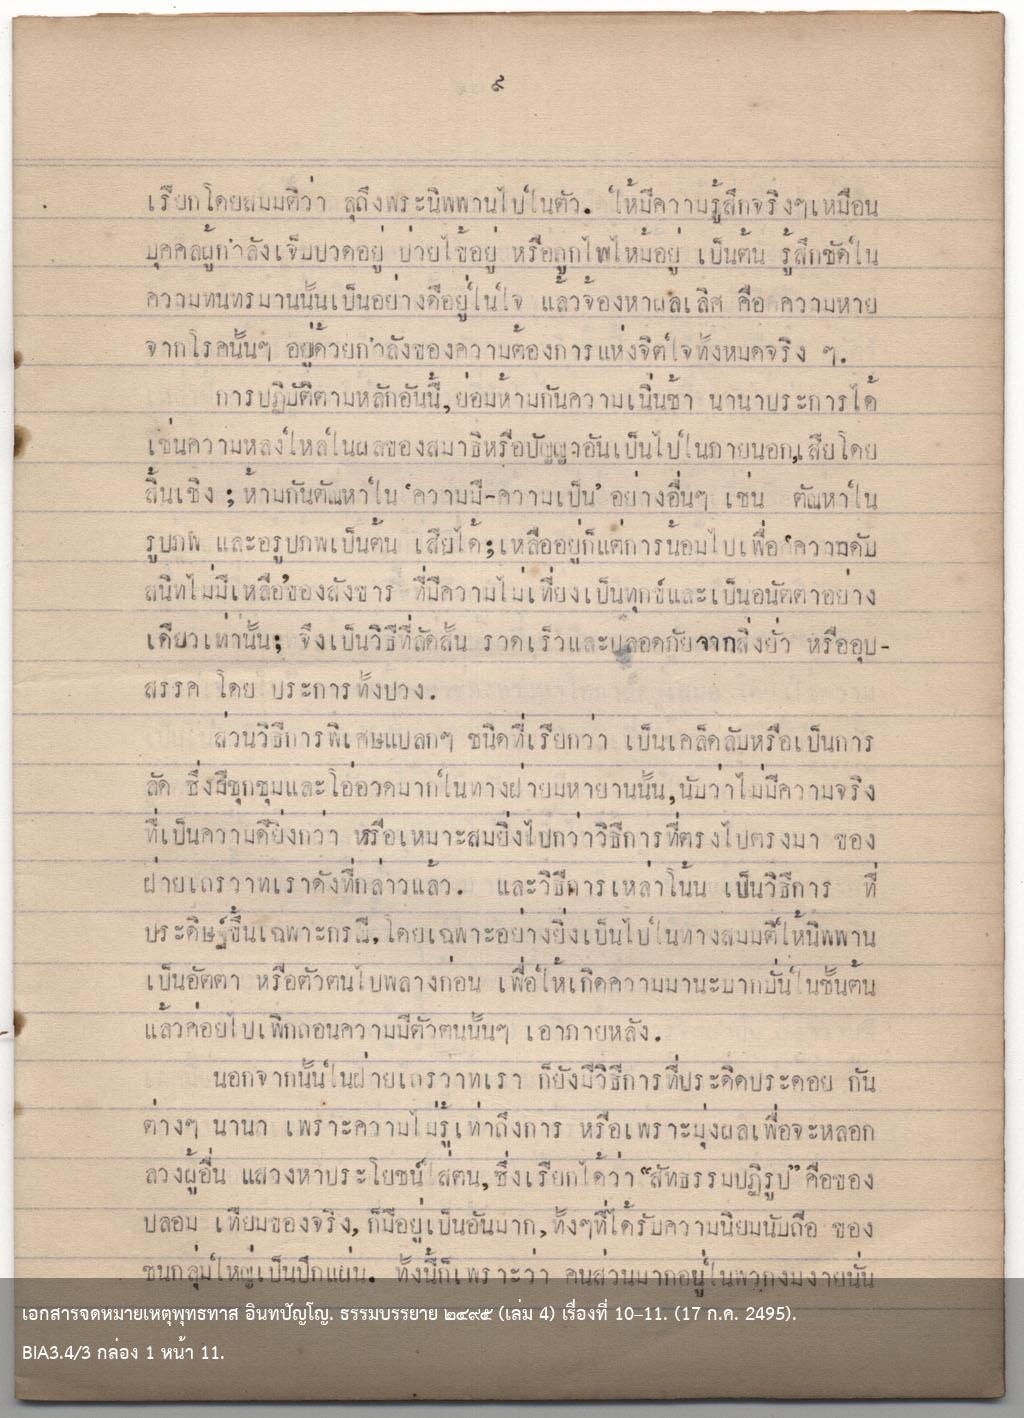 ๙
เรียกโดยสมมติว่า ลุถึงพระนิพพานไปในตัว. ให้มีความรู้สึกจริงๆเหมือน
บุคคลผู้กำลังเจ็บปวดอยู่ ป่วยไข้อยู่ หรือถูกไฟไหม้อยู่ เป็นต้น รู้สึกชัดใน
ความทนทรมานนั้นเป็นอย่างดีอยู่ในใจ แล้วจ้องหาผลเลิศ คือ ความหาย
จากโรคนั้นๆ อยู่ด้วยกำลังของความต้องการแห่งจิตใจทั้งหมดจริง ๆ.
การปฏิบัติตามหลักอันนี้,ย่อมห้ามกันความเนิ่นช้า นานาประการได้
เช่นความหลงใหลในผลของสมาธิหรือปัญญาอันเป็นไปในภายนอก,เสียโดย
สิ้นเชิง ; ห้ามกันตัณหาใน 'ความมี-ความเป็น' อย่างอื่นๆ เช่น ตัณหาใน
รูปภพ และอรูปภพเป็นต้น เสียได้;เหลืออยู่ก็แต่การน้อมไปเพื่อ 'ความดับ
สนิทไม่มีเหลือ'ของสังขาร ที่มีความไม่เที่ยงเป็นทุกข์และเป็นอนัตตาอย่าง
เดียวเท่านั้น; จึงเป็นวิธีที่ลัดสั้น รวดเร็วและปลอดภัยจากสิ่งยั่ว หรืออุป-
สรรค โดย ประการทั้งปวง.
ส่วนวิธีการพิเศษแปลกๆ ชนิดที่เรียกว่า เป็นเคล็ดลับหรือเป็นการ
ลัด ซึ่งมีชุกชุมและโอ่อวดมากในทางฝ่ายมหายานนั้น,นับว่าไม่มีความจริง
ที่เป็นความดียิ่งกว่า หรือเหมาะสมยิ่งไปกว่าวิธีการที่ตรงไปตรงมา ของ
ฝ่ายเถรวาทเราดังที่กล่าวแล้ว. และวิธีการเหล่าโน้น เป็นวิธีการ ที่
ประดิษฐ์ขึ้นเฉพาะกรณี,โดยเฉพาะอย่างยิ่งเป็นไปในทางสมมติให้นิพพาน
เป็นอัตตา หรือตัวตนไปพลางก่อน เพื่อให้เกิดความมานะบากบั่นในชั้นต้น
แล้วค่อยไปเพิกถอนความมีตัวตนนั้นๆ เอาภายหลัง.
นอกจากนั้นในฝ่ายเถรวาทเรา ก็ยังมีวิธีการที่ประดิดประดอย กัน
ต่างๆ นานา เพราะความไม่รู้เท่าถึงการ หรือเพราะมุ่งผลเพื่อจะหลอก
ลวงผู้อื่น แสวงหาประโยชน์ใส่ตน,ซึ่งเรียกได้ว่า "สัทธรรมปฏิรูป" คือของ
ปลอม เทียมของจริง,ก็มีอยู่เป็นอันมาก,ทั้งๆที่ได้รับความนิยมนับถือ ของ
ชนกลุ่มใหญ่เป็นปึกแผ่น. ทั้งนี้ก็เพราะว่า คนส่วนมากอยู่ในพวกงมงายนั่น
เอกสารจดหมายเหตุพุทธทาส อินทปัญโญ. ธรรมบรรยาย ๒๔๙๕ (เล่ม 4) เรื่องที่ 10–11. (17 ก.ค. 2495).
BIA3.4/3 กล่อง 1 หน้า 11.